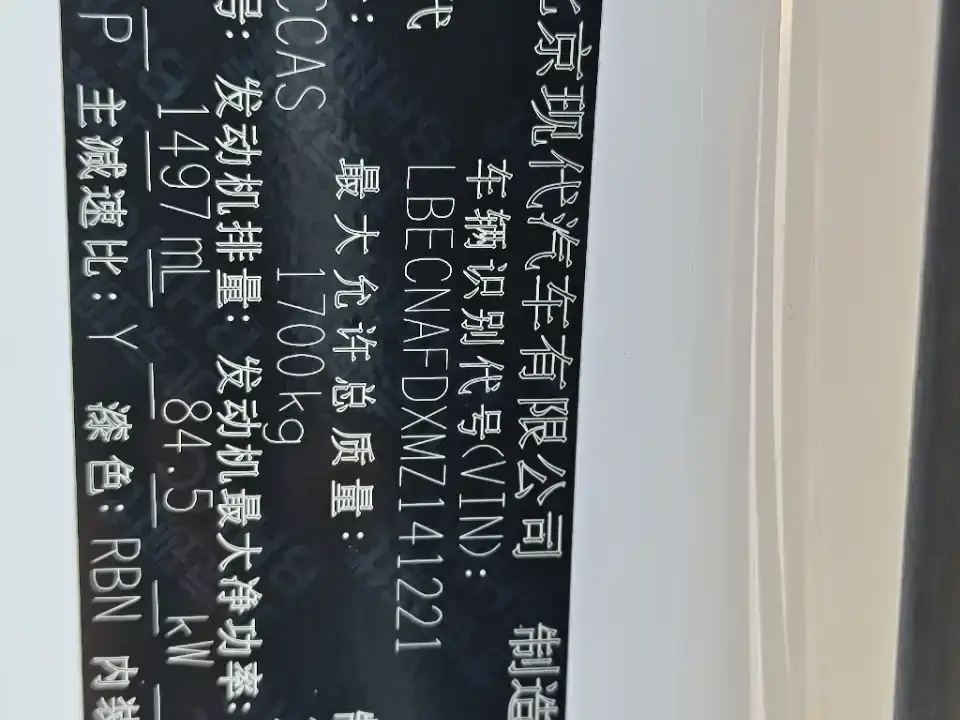 北京现代汽车有限公司 制造
车辆识别代号(VIN):
LBECNAFDXMZ141221
代
最大允许总质量:
CCAS 1700kg
号: 发动机排量: 发动机最大净功率:
1497mL 84.5 kW
P 主减速比: Y 漆色: RBN 内